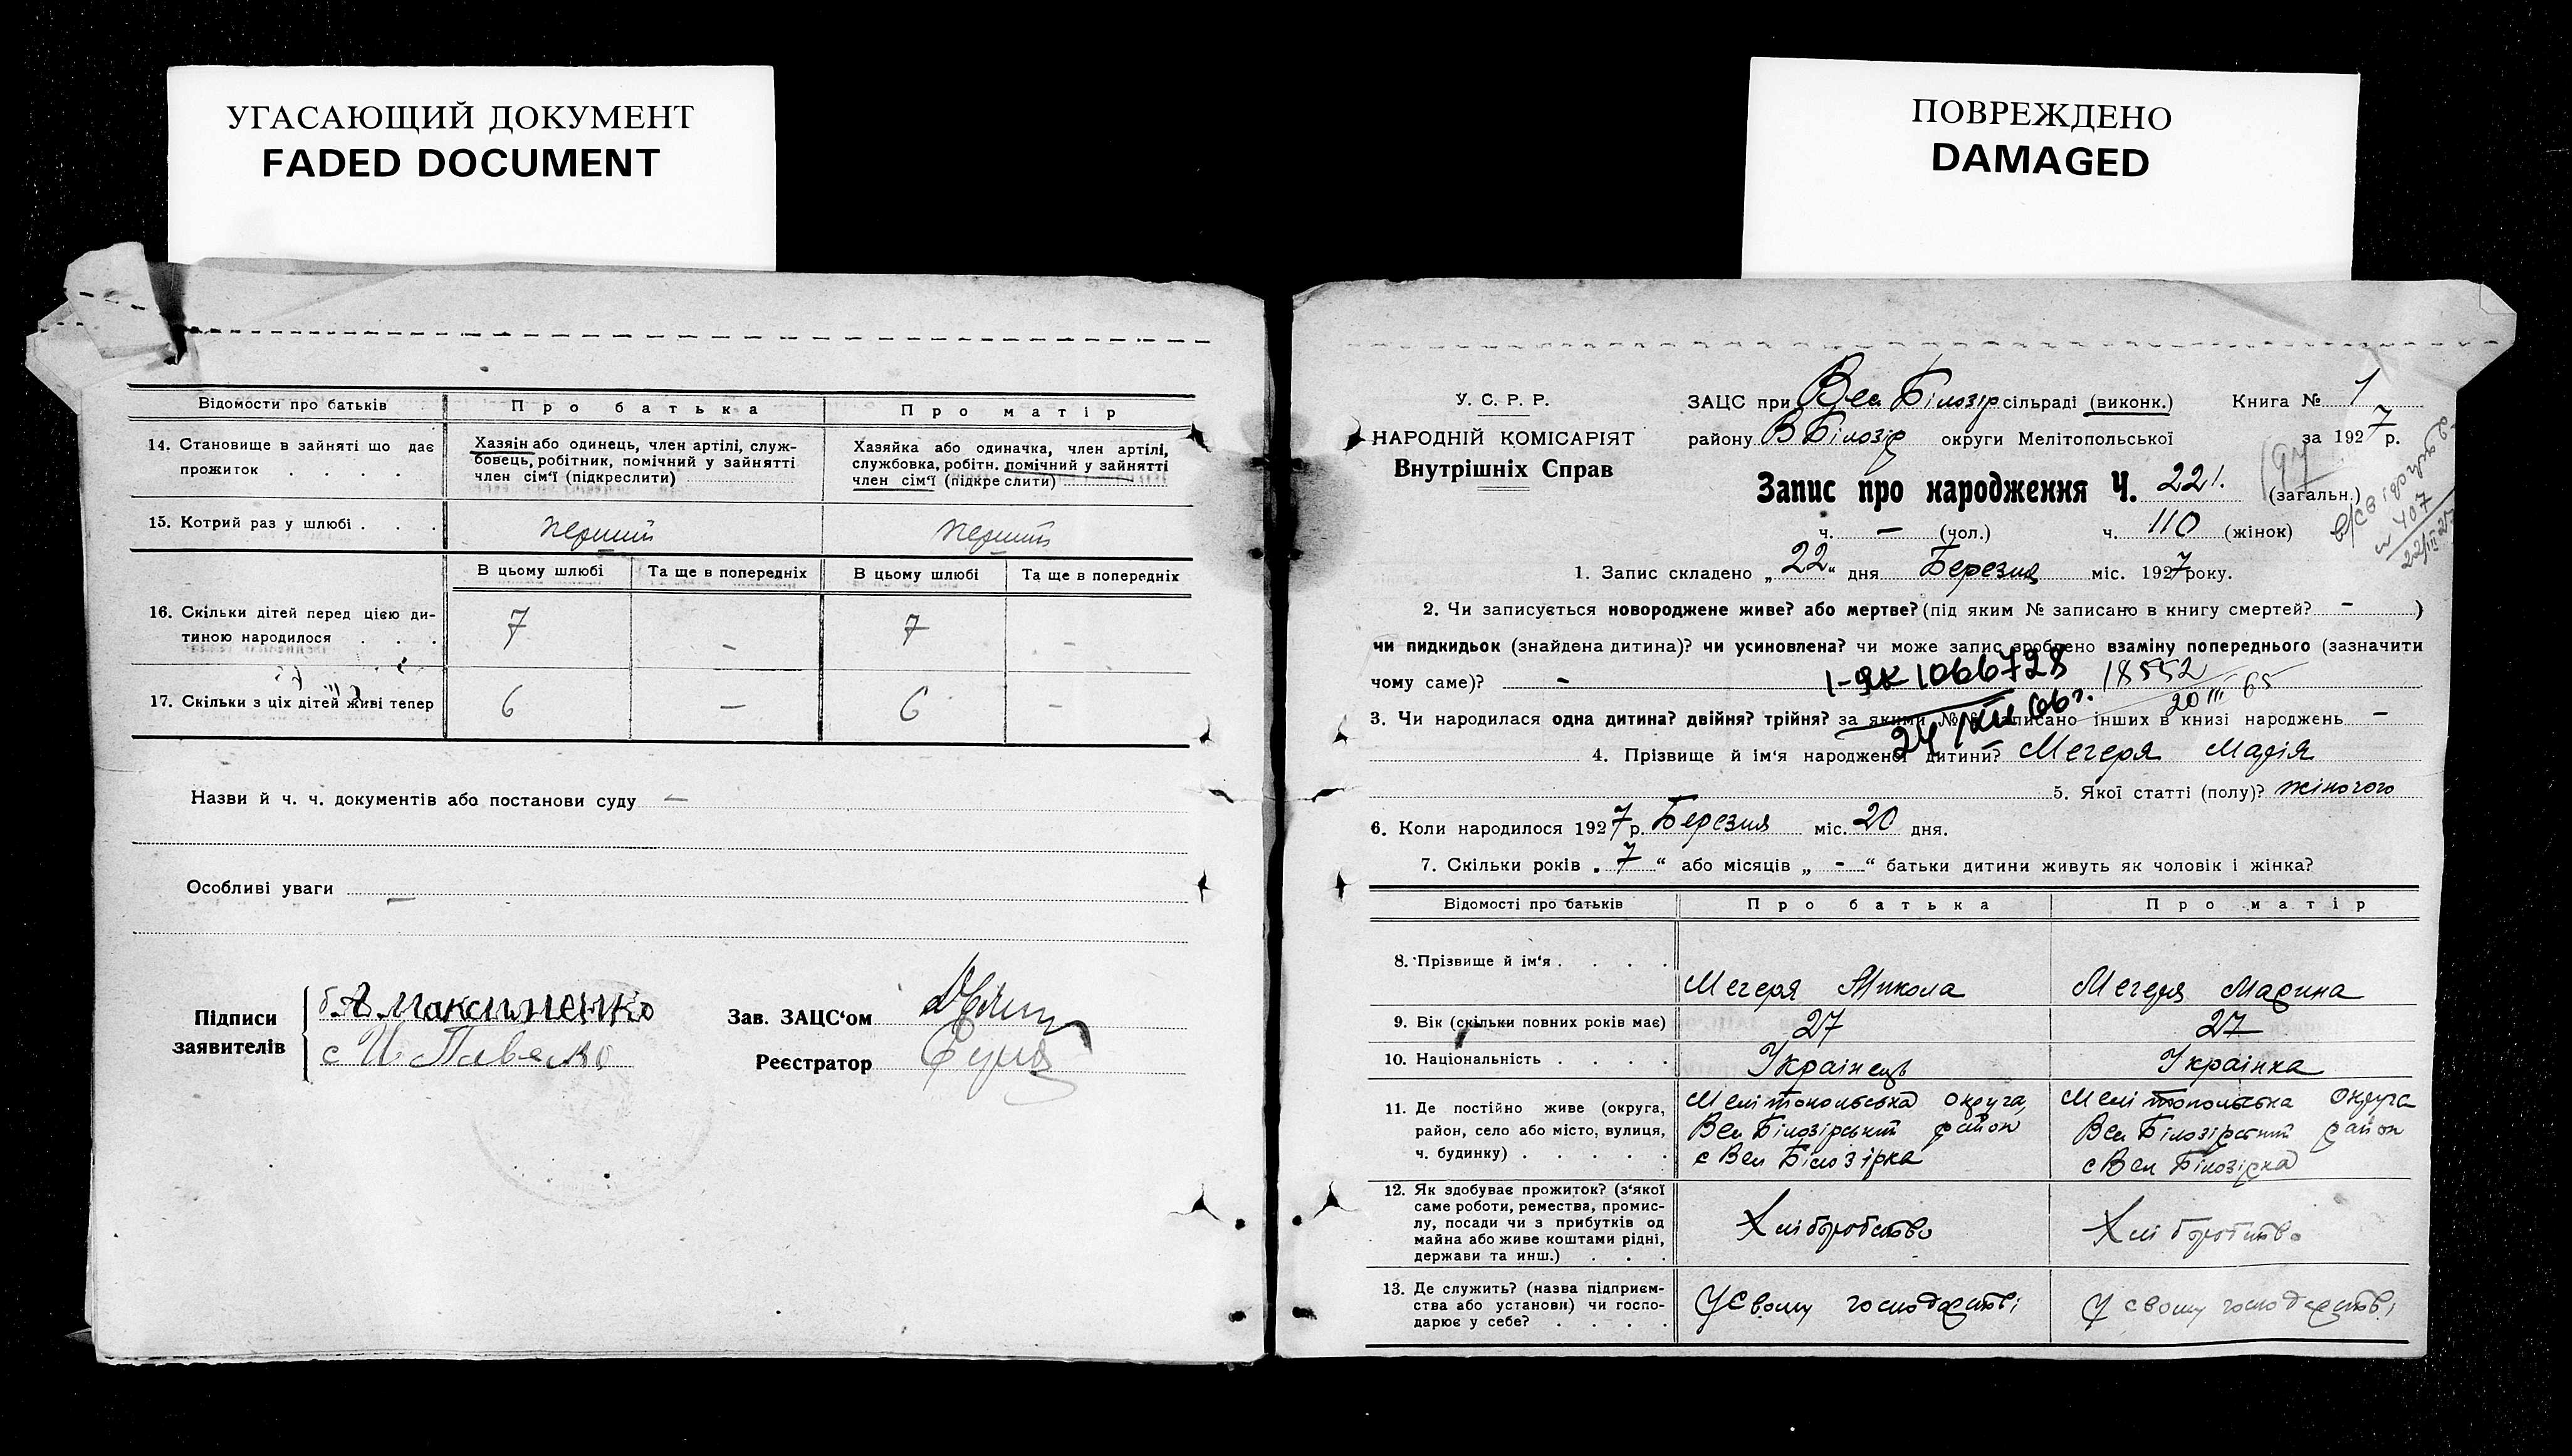 УГАСАЮЩИЙ ДОКУМЕНТ
FADED DOCUMENT
ПОВРЕЖДЕНО
DAMAGED
Відомости про батьків
Про батька
Про матір
14. Становище в зайняті що дає
прожиток . . . .
Хазяін або одинець, член артілі, служ-
бовець, робітник, помічний у зайнятті
член сім'ї (підкреслити)
Хазяйка або одиначка, член артілі,
службовка, робітн. помічний у зайнятті
член сім'ї (підкреслити)
15. Котрий раз у шлюбі . . .
перший
перший
В цьому шлюбі
Та ще в попередніх
В цьому шлюбі
Та ще в попередніх
16. Скільки дітей перед цією ди-
тиною народилося . . .
7
-
7
-
17. Скільки з ціх дітей живі тепер
6
-
6
-
Назви й ч. ч. документів або постанови суду -
Особливі уваги -
Підписи
заявителів
б. А Максименко
с
Зав. ЗАЦС'ом
Реєстратор
У. С. Р. Р.
НАРОДНІЙ КОМІСАРІЯТ
Внутрішніх Справ
ЗАЦС при Вел Білозір сільраді (виконк.) Книга № 1
району В Білозір округи Мелітопольської за 1927 р.
Запис про народження Ч. 221. (загальн.)
ч. - (чол.) ч. 110 (жінок)
407
22/III 27
1. Запис складено „22“ дня Березня міс. 1927 року.
2. Чи записується новороджене живе? або мертве? (під яким № записано в книгу смертей? - )
чи пидкидьок (знайдена дитина)? чи усиновлена? чи може запис зроблено взаміну попереднього (зазначити
чому саме)? -
1-ЯК 1066728
18552
20 III 65
24/XII 66 г.
3. Чи народилася одна дитина? двійня? трійня? за якими №№ записано інших в книзі народжень -
4. Прізвище й ім'я народженої дитини? Мегеря Марія
5. Якої статті (полу)? жіночого
6. Коли народилося 1927 р. Березня міс. 20 дня.
7. Скільки років „7“ або місяців „-“ батьки дитини живуть як чоловік і жінка?
Відомості про батьків
Про батька
Про матір
8. Прізвище й ім'я . . . .
Мегеря Микола
Мегеря Марина
9. Вік (скільки повних років має)
27
27
10. Національність . . . .
Українець
Українка
11. Де постійно живе (округа,
район, село або місто, вулиця,
ч. будинку) . . . . .
Мелітопольська округа,
Вел Білозірський район
с Вел Білозірка
Мелітопольська округа
Вел Білозірський район
с Вел Білозірка
12. Як здобуває прожиток? (з'якої
саме роботи, ремества, промис-
лу, посади чи з прибутків од
майна або живе коштами рідні,
держави та инш.) . . .
Хліборобство
Хліборобство
13. Де служить? (назва підприєм-
ства або установи) чи госпо-
дарює у себе? . . . .
У своому господарстві
У своому господарстві